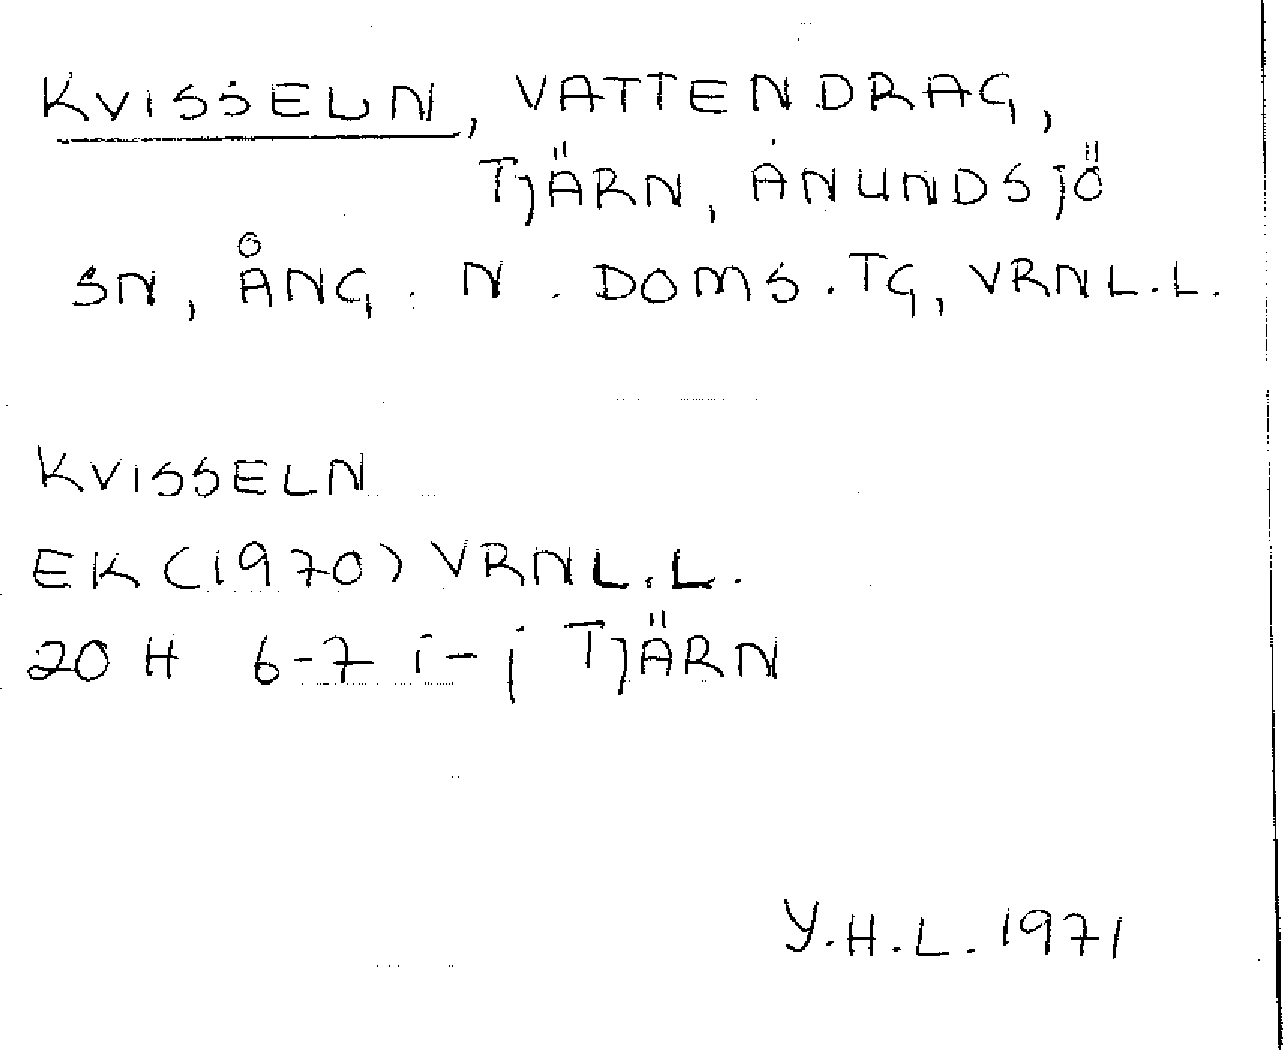 KVISSELN, VATTENDRAG,
TJÄRN, ANUNDSJÖ
SN, ÅNG. N. DOMS.TG, VRNL.L.
KVISSELN
EK (1970) VRNL.L.
20 H 6-7 i-j TJÄRN
Y.H.L. 1971